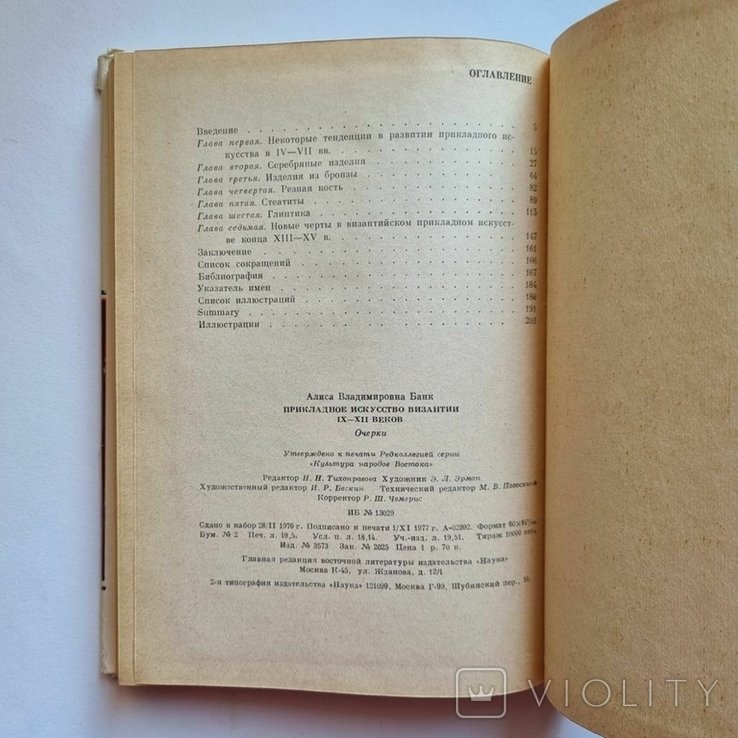 ОГЛАВЛЕНИЕ
Введение . . . . . . . . . . 5
Глава первая. Некоторые тенденции в развитии прикладного ис-
кусства в IV—VII вв. . . . . . . . . . 15
Глава вторая. Серебряные изделия . . . . . . . . . . 27
Глава третья. Изделия из бронзы . . . . . . . . . . 64
Глава четвертая. Резная кость . . . . . . . . . . 82
Глава пятая. Стеатиты . . . . . . . . . . 89
Глава шестая. Глиптика . . . . . . . . . . 115
Глава седьмая. Новые черты в византийском прикладном искусст-
ве конца XIII—XV в. . . . . . . . . . 147
Заключение . . . . . . . . . . 161
Список сокращений . . . . . . . . . . 166
Библиография . . . . . . . . . . 167
Указатель имен . . . . . . . . . . 184
Список иллюстраций . . . . . . . . . . 186
Summary . . . . . . . . . . 191
Иллюстрации . . . . . . . . . . 203
Алиса Владимировна Банк
ПРИКЛАДНОЕ ИСКУССТВО ВИЗАНТИИ
IX—XII ВЕКОВ
Очерки
Утверждено к печати Редколлегией серии
«Культура народов Востока»
Редактор Н. Н. Тихонравова Художник Э. Л. Эрман
Художественный редактор И. Р. Бескин Технический редактор М. В. Погоскина
Корректор Р. Ш. Чемерис
ИБ № 13029
Сдано в набор 28/II 1976 г. Подписано к печати 1/XI 1977 г. А-02992. Формат
Бум. № 2 Печ. л. 19,5. Усл. п. л. 18,14. Уч.-изд. л. 19,51. Тираж 10000 экз.
Изд. № 3573 Зак. № 2025 Цена 1 р. 70 к.
Главная редакция восточной литературы издательства «Наука»
Москва К-45, ул. Жданова, д. 12/1
2-я типография издательства «Наука» 121099, Москва Г-99, Шубинский пер.,
VIOLITY